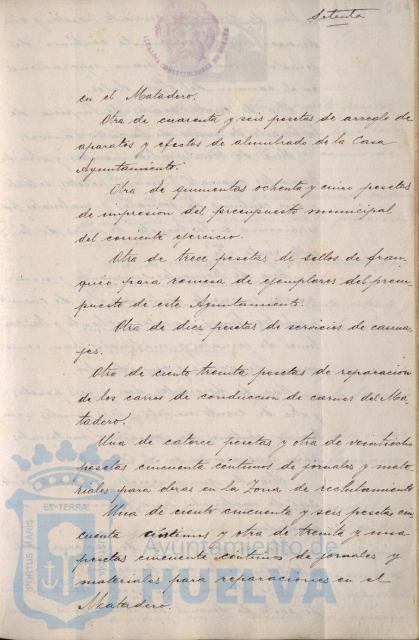 Setenta
en el Matadero.
Otra de cuarenta y seis pesetas de arreglo de
aparatos y efectos de alumbrado de la Casa
Ayuntamiento.
Otra de quinientas ochenta y cinco pesetas
de impresion del presupuesto municipal
del corriente ejercicio.
Otra de trece pesetas de sellos de fran-
queo para remesa de ejemplares del presu-
puesto de este Ayuntamiento.
Otra de diez pesetas de servicios de carrua-
jes.
Otro de ciento treinta pesetas de reparacion
de los carros de conduccion de carnes del Ma-
tadero.
Una de catorce pesetas y otra de veintiocho
pesetas cincuenta céntimos de jornales y mate-
riales para obras en la Zona de reclutamiento
Una de ciento cincuenta y seis pesetas cin-
cuenta céntimos y otra de treinta y una
pesetas cincuenta céntimos de jornales y
materiales para reparaciones en el
Matadero.
PORTUS MARIS
ET TERRÆ
Ayuntamiento de
HUELVA